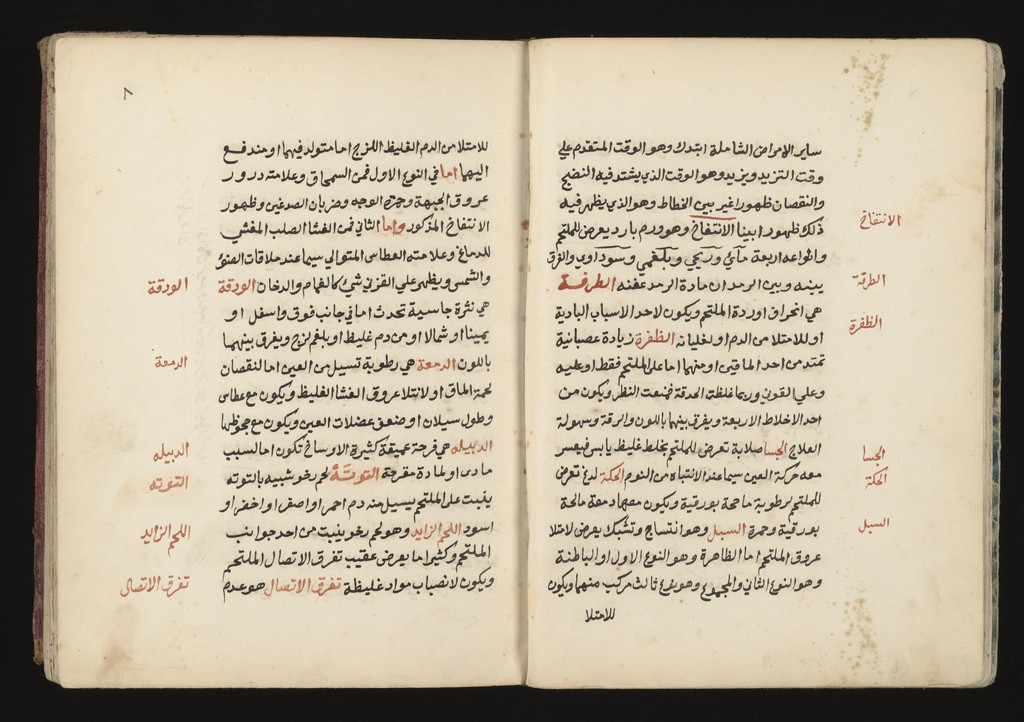 ساير الامراض الشاملة ابتدك وهو الوقت المتقدم علي
وقت التزيد ويزيد وهو الوقت الذي يشتد فيه النضج
والنقصان ظهورا غير بين الخطاط وهو الذي يظهر فيه
الانتفاخ
ذلك ظهورا بينا الانتفاخ وهو ورم بارد يعرض للملتحم
وانواعه اربعة مآئي وريحي وبلغمي وسوداوي والفرق
الطرقة
بينه وبين الرمد ان مادة الرمد عفنه الطرفة
هي انخراق اوردة الملتحم ويكون لاحد الاسباب البادية
الظفرة
او للامتلا من الدم او لغليانه الظفرة زيادة عصبانية
تمتد من احد الماقين او منهما اما على الملتحم فقط او عليه
وعلي القرن وربما غلظت الحدقة فمنعت النظر ويكون من
احد الاخلاط الاربعة ويفرق بينها باللون والرقة وسهولة
الجسا
العلاج الجسا صلابة تعرض للملتحم بخلط غليظ يابس فيعسر
الحكة
معه حركة العين سيما عند الانتباه من النوم الحكة لدغ تعرض
للملتحم لرطوبة مالحة بورقية ويكون معها دمعة مالحة
السبل
بورقية وحمرة السبل وهو انتساج وتشبك يعرض لامتلا
عروق الملتحم اما الظاهرة وهو النوع الاول او الباطنة
وهو النوع الثاني والمجموع وهو نوع ثالث مركب منهما ويكون
للامتلا
٨
للامتلا من الدم الغليظ اللزج اما متولد فيهما او مندفع
اليهما اما في النوع الاول فمن السمحاق وعلامته درور
عروق الجبهة وحمرة الوجه وضربان الصدغين وظهور
الانتفاخ المذكور واما الثاني فمن الغشا الصلب المغشي
للدماغ وعلامته العطاس المتوالي سيما عند ملاقات الضوء
الودقة
والشمس ويظهر علي القرني شيء كالغمام والدخان الودقة
هي نثرة جاسية تحدث اما في جانب فوق واسفل او
يمينا او شمالا او من دم غليظ او بلغم لزج ويفرق بينهما
الدمعة
باللون الدمعة هي رطوبة تسيل من العين اما لنقصان
لحمة الماق او لانتلا عروق الغشا الغليظ ويكون مع عطاس
وطول سيلان او ضعف عضلات العين ويكون مع جحوظها
الدبيله
الدبيله هي قرحة عميقة كثيرة الاوساخ تكون اما لسبب
التوته
مادى او لمادة مقرحة التوتة لحم رخو شبيه بالتوته
ينبت على الملتحم يسيل منه دم احمر او اصفر او اخضر او
اللحم الزايد
اسود اللحم الزايد وهو لحم رخو ينبت من احد جوانب
الملتحم وكثيرا ما يعرض عقيب تفرق الاتصال الملتحم
تفرق الاتصال
ويكون لانصباب مواد غليظة تفرق الاتصال هو عدم